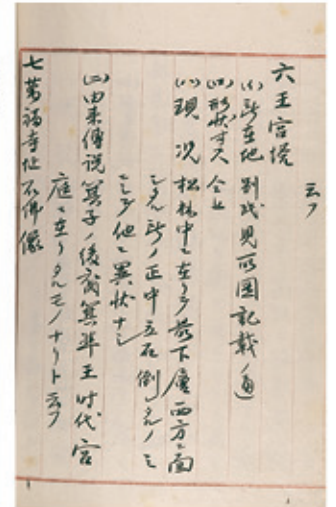 云フ
六 王宮塔
(イ)所在地 別紙見取圖記載ノ通
(ロ)形状寸尺 仝上
(ハ)現況 松林中ニ在リテ最下層西方ニ面
シタル所ノ正中立石倒タルノミ
ニシテ他ニ異状ナシ
(ニ)由来傳説 箕子ノ後裔箕準王时代宮
庭ニ在リタルモノナリト云フ
七 萬福寺址石佛像